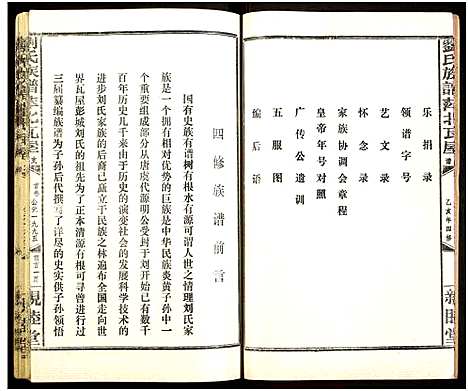 劉氏族譜萍北瓦屋
乙亥年四修
親睦堂
乐捐录
领谱字号
艺文录
怀念录
家族协调会章程
皇帝年号对照
广传公遗训
五服图
编后语
四修族谱前言
国有史族有谱树有根水有源可谓人世之情理刘氏家
族是一个拥有相对优势的巨族也是中华民族炎黄子孙中一
个重要组成部分由唐虞代源明公受封于刘开始于今已
百年历史几千来由于历史的演变社会的发展科学技术的
进步刘氏家族的后裔已矗立于民族之林遍布全国走向世
界瓦屋彭城刘氏为了使后人知道本源有根可寻曾进行过
三届纂编族谱为子孙后代撰写了详尽的史实供子孙领悟
劉氏族譜萍北瓦屋
親睦堂